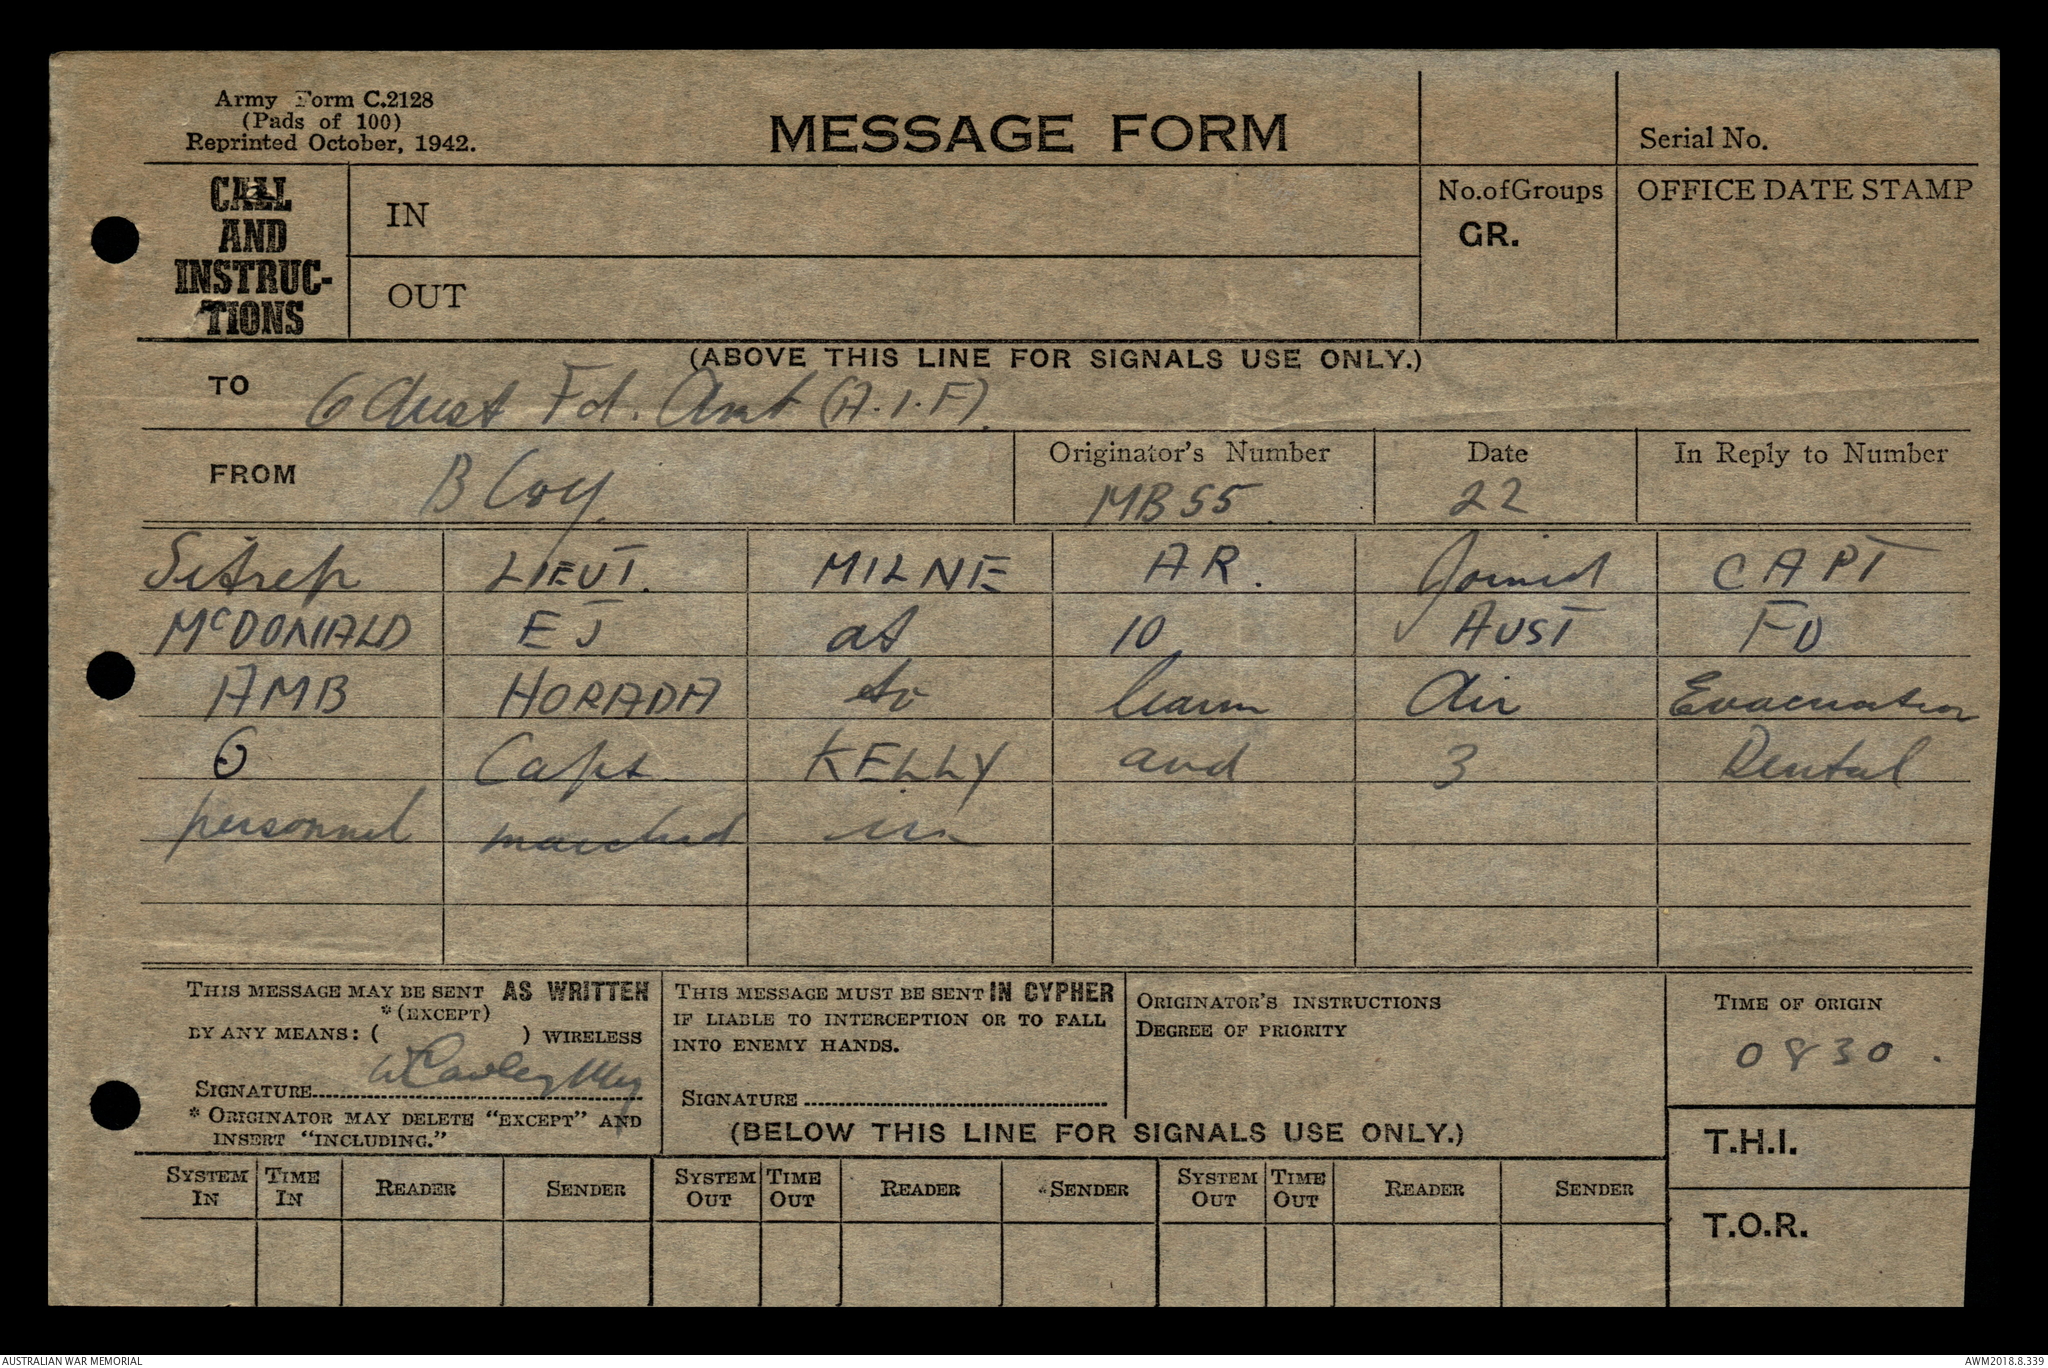 Army Form C.2128
(Pads of 100)
Reprinted October, 1942.
MESSAGE FORM
Serial No.
CALL AND INSTRUC- TIONS
IN
OUT
No. of Groups
GR.
OFFICE DATE STAMP
(ABOVE THIS LINE FOR SIGNALS USE ONLY.)
TO 6 Aust Fd. Amb (A.I.F)
FROM B Coy.
Originator's Number MB55.
Date 22
In Reply to Number
Sitrep LIEUT. MILNE AR. Joined CAPT
McDONALD EJ at 10 AUST FD
AMB HORADA to learn Air Evacuation
⊙ Capt KELLY and 3 Dental
personnel marched in
THIS MESSAGE MAY BE SENT AS WRITTEN
*(EXCEPT)
BY ANY MEANS: ( ) WIRELESS
SIGNATURE
* ORIGINATOR MAY DELETE "EXCEPT" AND
INSERT "INCLUDING."
THIS MESSAGE MUST BE SENT IN CYPHER
IF LIABLE TO INTERCEPTION OR TO FALL
INTO ENEMY HANDS.
SIGNATURE
ORIGINATOR'S INSTRUCTIONS
DEGREE OF PRIORITY
TIME OF ORIGIN
0830.
(BELOW THIS LINE FOR SIGNALS USE ONLY.)
T.H.I.
SYSTEM IN TIME IN READER SENDER SYSTEM OUT TIME OUT READER SENDER SYSTEM OUT TIME OUT READER SENDER
T.O.R.
AUSTRALIAN WAR MEMORIAL
AWM2018.8.339